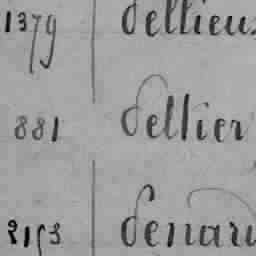 1379 dellieu
881 dellier
2153 denar